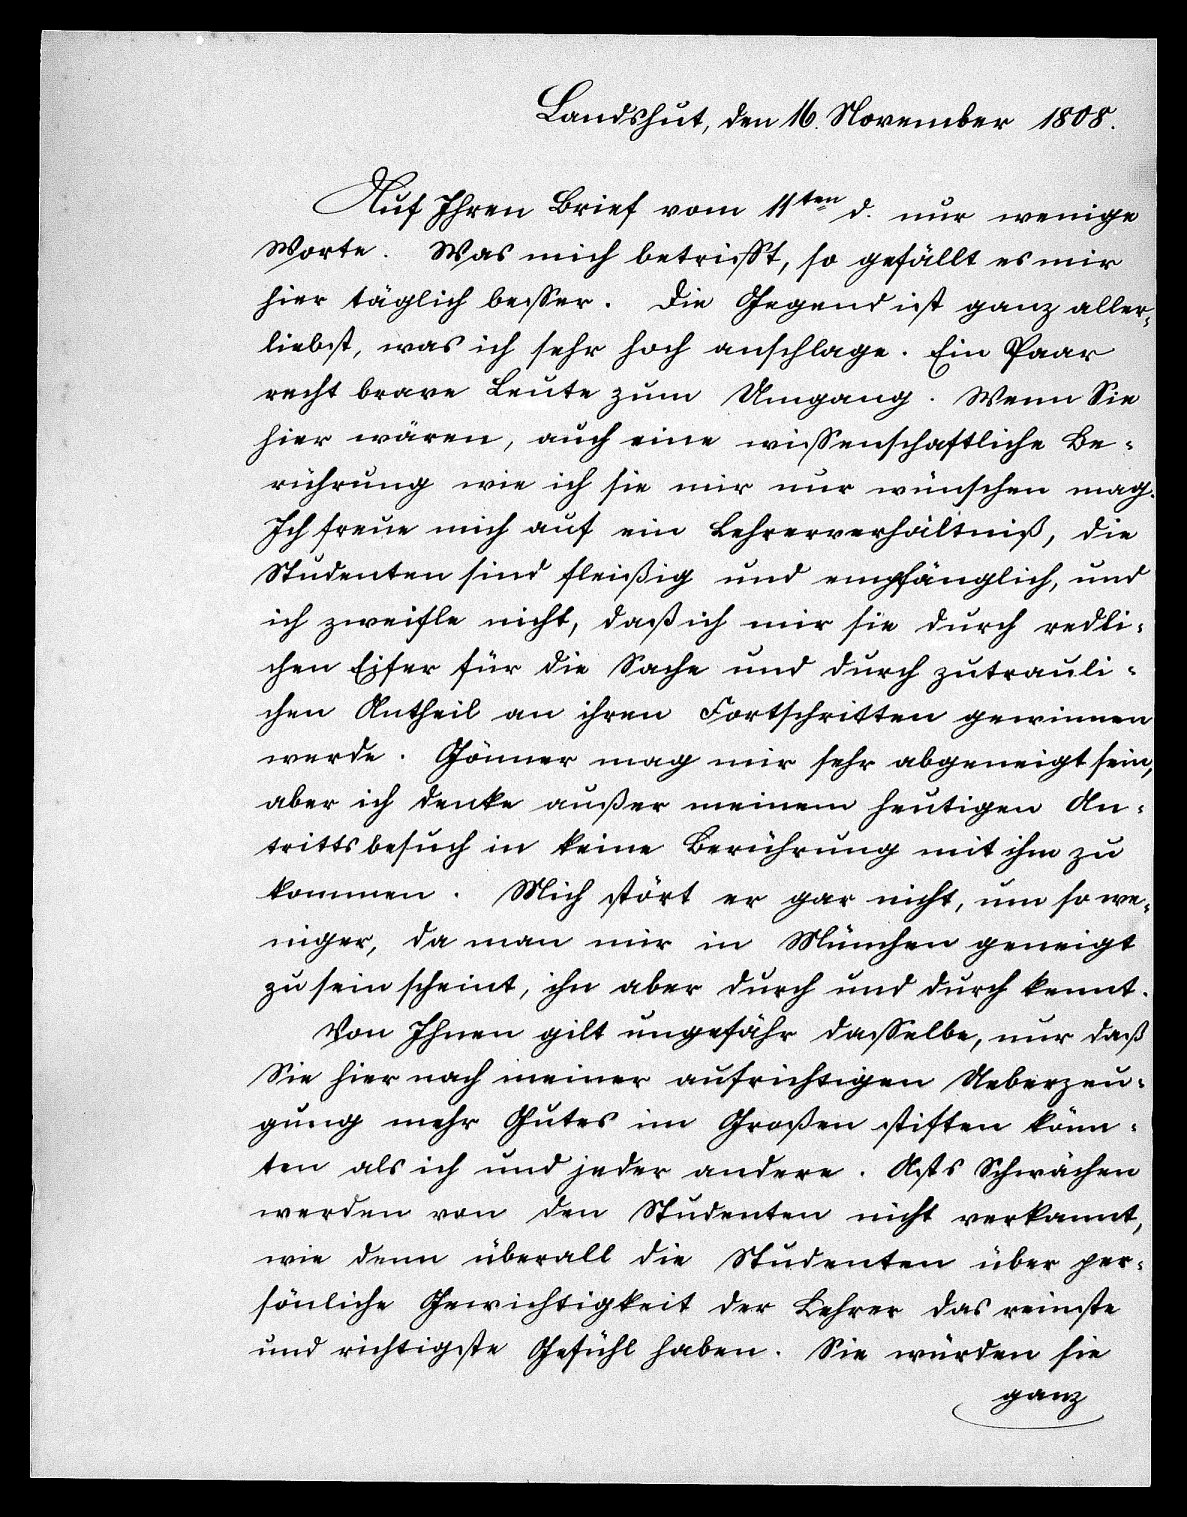 Landshut, den 16. November 1808.
Auf Ihren Brief vom 11ten d. nur wenige
Worte. Was mich betrifft, so gefällt es mir
hier täglich besser. Die Gegend ist ganz aller-
liebst, was ich sehr hoch anschlage. Ein Paar
recht brave Leute zum Umgang. Wenn Sie
hier wären, auch eine wissenschaftliche Be-
rührung wie ich sie mir nur wünschen mag.
Ich freue mich auf ein Lehrerverhältniß, die
Studenten sind fleißig und empfänglich, und
ich zweifle nicht, daß ich mir sie durch redli-
chen Eifer für die Sache und durch zutrauli-
chen Antheil an ihren Fortschritten gewinnen
werde. Gönner mag mir sehr abgeneigt sein,
aber ich denke außer meinem heutigen An-
trittsbesuch in keine Berührung mit ihm zu
kommen. Mich stört er gar nicht, um so we-
niger, da man mir in München geneigt
zu sein scheint, ihn aber durch und durch kennt.
Von Ihnen gilt ungefähr dasselbe, nur daß
Sie hier nach meiner aufrichtigen Ueberzeu-
gung mehr Gutes im Großen stiften könn-
ten als ich und jeder andere. Asts Schwächen
werden von den Studenten nicht verkannt,
wie denn überall die Studenten über per-
sönliche Gewichtigkeit der Lehrer das reinste
und richtigste Gefühl haben. Sie würden sie
ganz